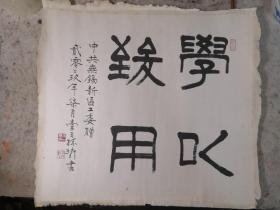 學以
致用
中共無錫新區工委贈
貳零零玖年柒月
書